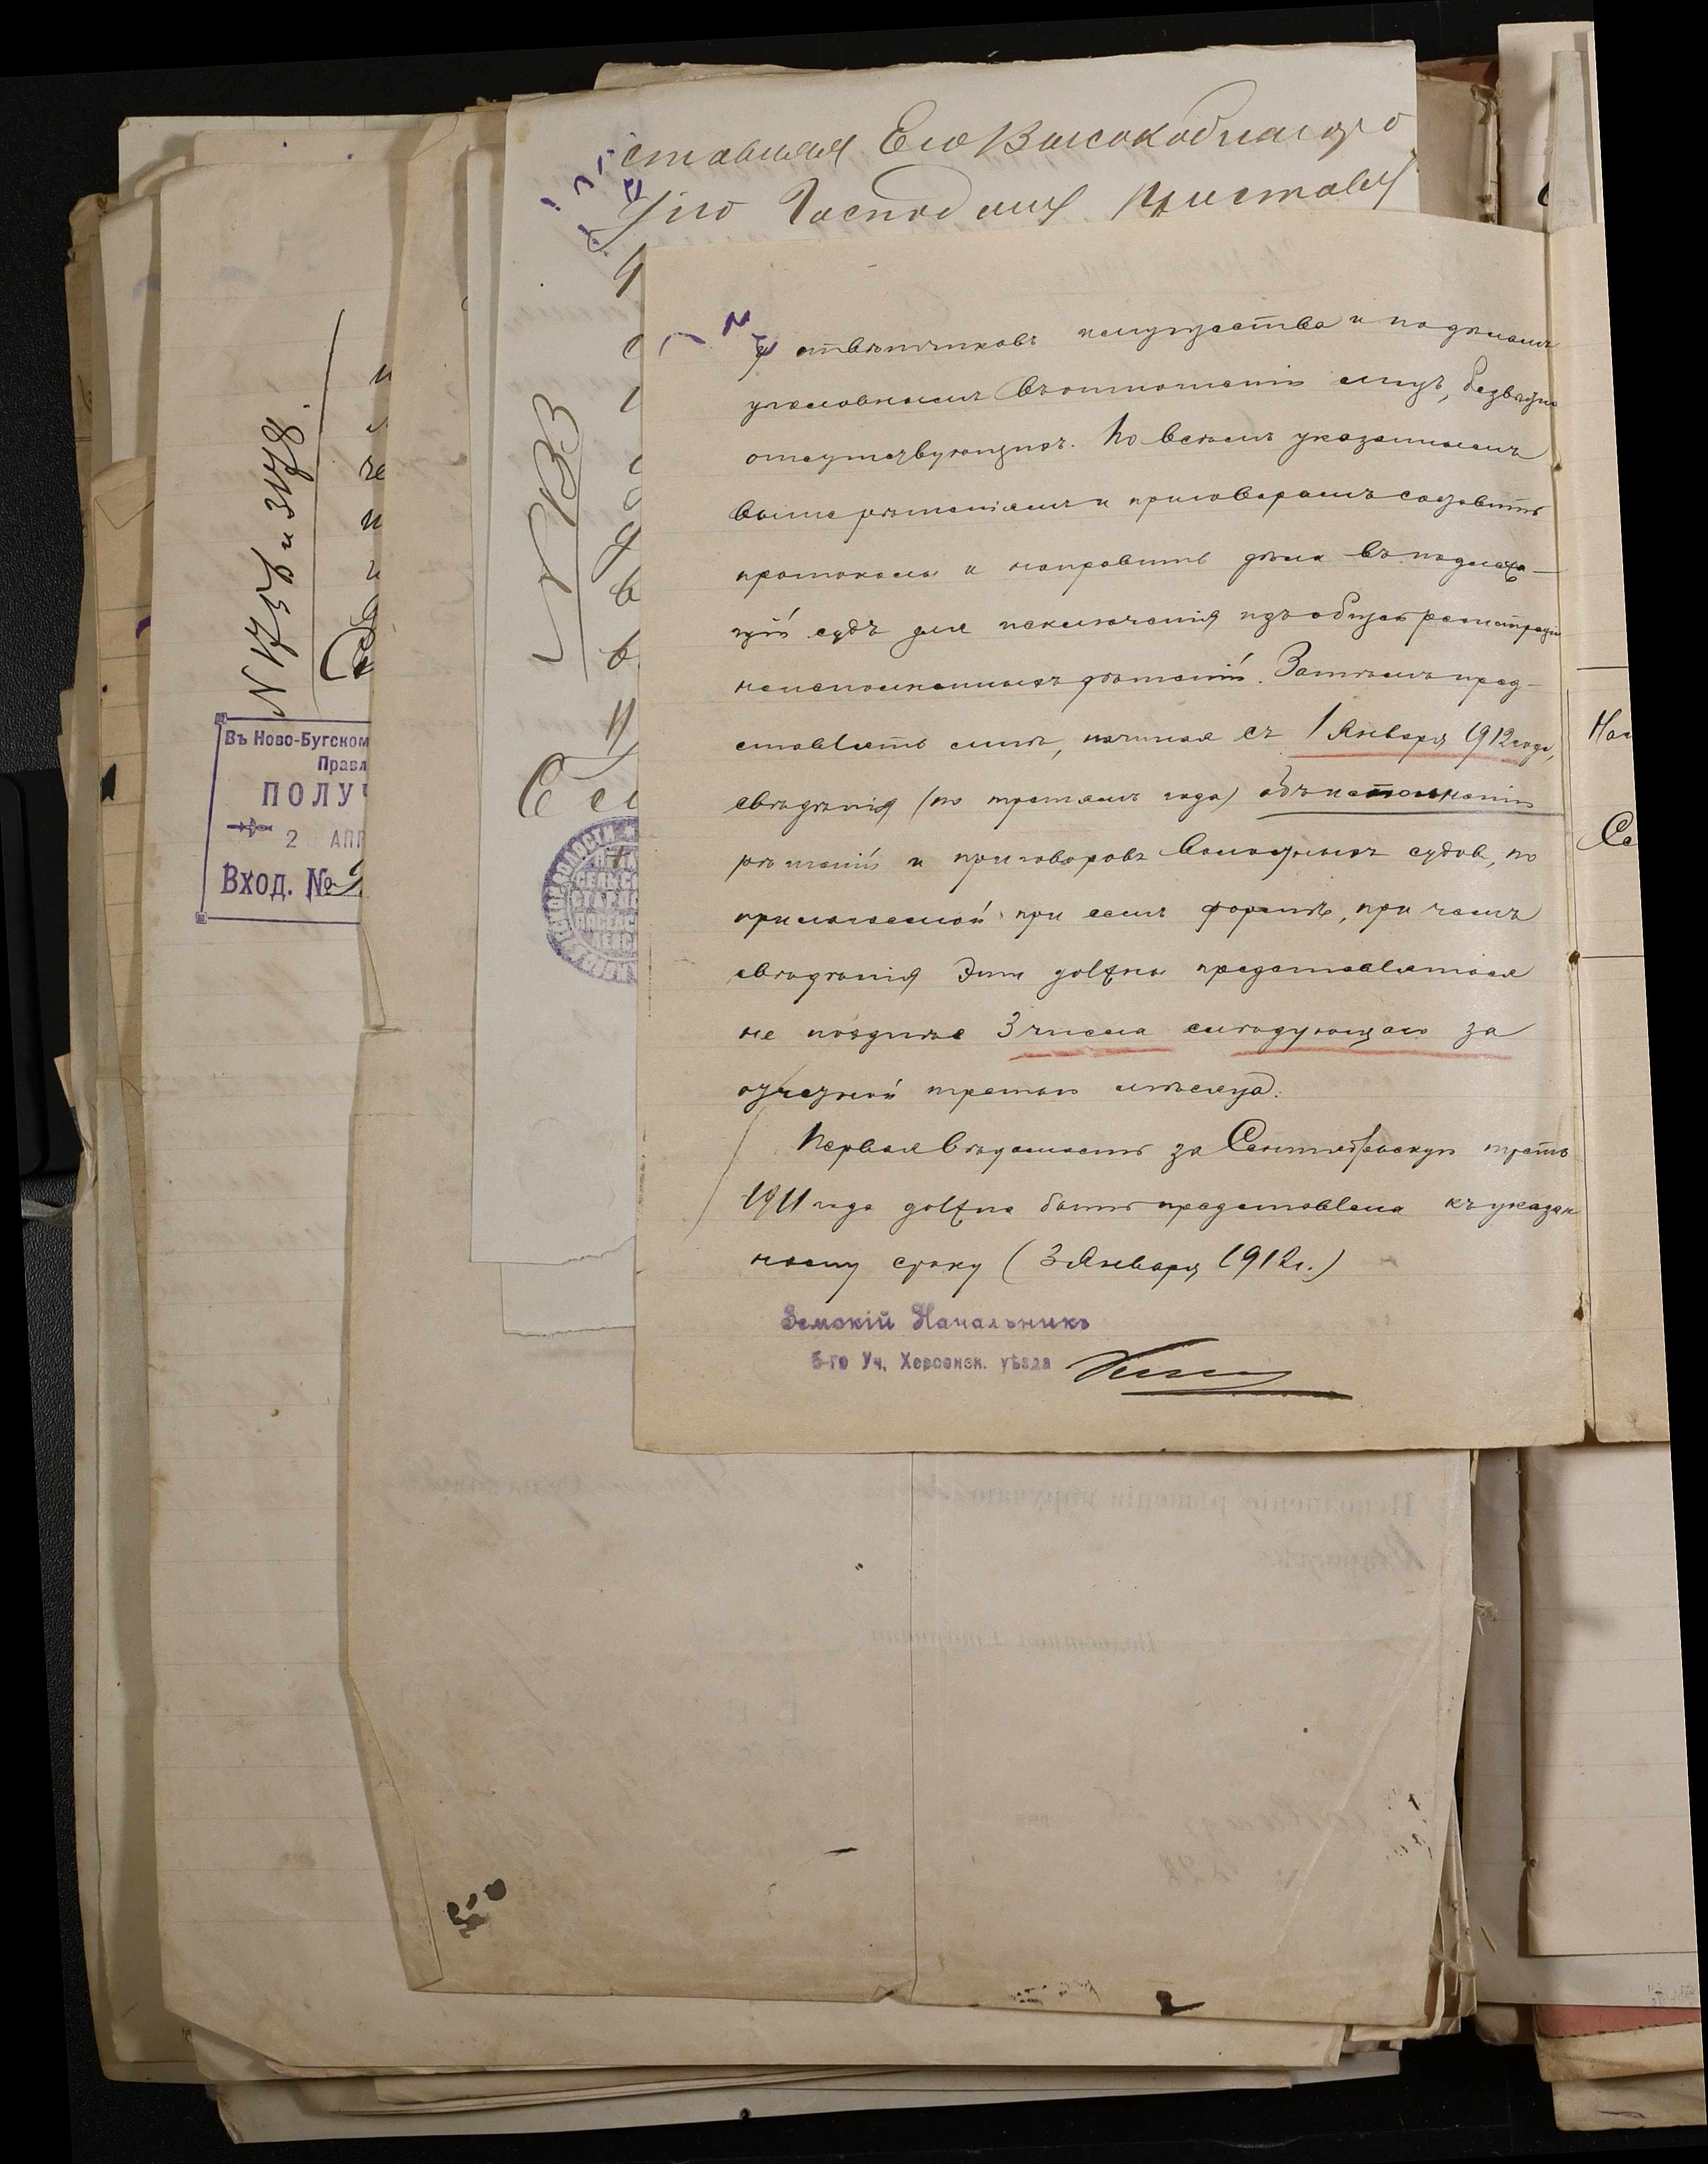 ставляя Его Высокоблагоро
дію Господину Приставу
N 1756 и 3178.
Въ Ново-Бугском
Правл
ПОЛУЧ
2 АПР
Вход. №
у отвѣтчиковъ имущества и по дѣламъ
уголовнымъ въ отношеніи лицъ, безвѣстно
отсутствующихъ. По всѣмъ указаннымъ
выше рѣшеніямъ и приговорамъ составить
протоколы и направить дѣла въ подлежа-
щій судъ для исключенія изъ общей регистраціи
неисполненныхъ рѣшеній. Затѣмъ пред-
ставлять мнѣ, начиная съ 1 Января 1912 года,
свѣдѣнія (по третямъ года) объ исполненіи
рѣшеній и приговоровъ Волостныхъ судовъ, по
прилагаемой при семъ формѣ, при чемъ
свѣдѣнія эти должны представляться
не позднѣе 3 числа слѣдующаго за
отчетной третью мѣсяца.
Первая вѣдомость за Сентябрьскую треть
1911 года должна быть представлена къ указан
ному сроку (3 Января 1912 г.)
Земскій Начальникъ
5-го Уч. Херсонск. уѣзда